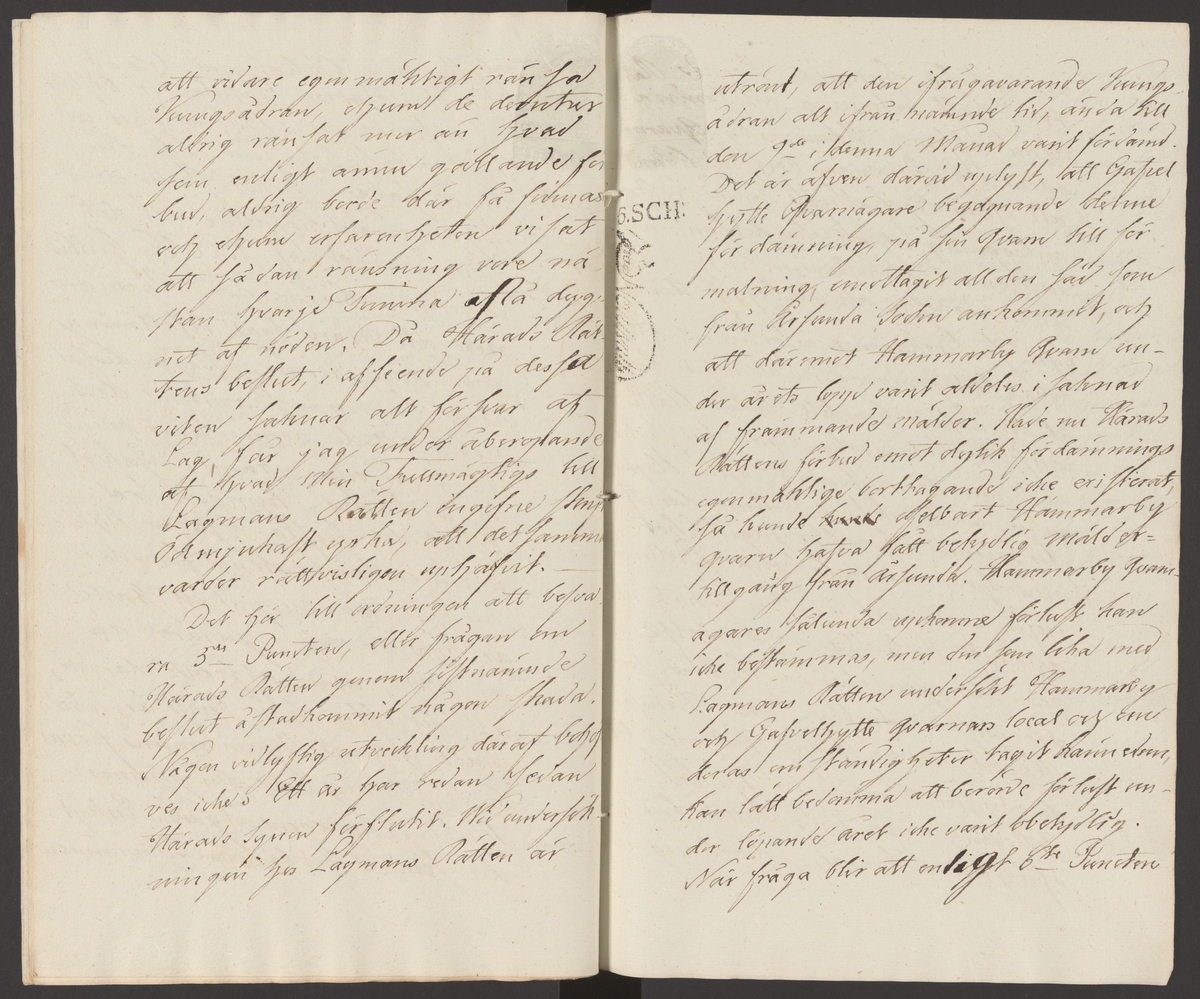 att vidare egenmäktigt ränsa
Kungsådran, ehuru de derutur
aldrig ränsat mer än hvad
som enligt ännu gällande för
bud, aldrig borde där få finnas
och ehuru erfarenheten visat
att sådan ränsning vore nä
stan hvarje Timma af få dyg
net af nöden. Då Härads Rät
tens beslut, i afseende på dessa
viten saknar allt försvar af
Lag, får jag under åberopande
af hvad Min Fullmägtigs till
Lagmans Rätten ingifne skrift
Ödmjukast yrka, att det samma
varder rättvisligen uphäfvit. —
Det hör till ordningen att besva
ra 5te Puncten, eller frågan om
Härads Rätten genom sistnämnde
beslut åstadkommit någon skada.
Någon vidlyftig utveckling däraf behöf
ves icke. Ett år har redan sedan
Härads Synen förflutit. Vid undersök
ningen hos Lagmans Rätten är
6.SCH:
utrönt, att den ifrågavarande Kungs
ådran alt ifrån nämnde tid, ända till
den 9de i denna Månad varit fördämd.
Det är äfven därvid uplyst, att Gafvel
hytte Qvarnägare begagnande denne
fördämning, på sin Qvarn till för
malning, emottagit all den säd som
från Årsunda Sockn ankommit, och
att däremot Hammarby Qvarn un-
der årets lopp varit aldeles i saknad
af främmande mälder. Hade nu Härads
Rättens förbud emot dylik fördämnings
egenmäktige borttagande icke existerat,
så kunde ofelbart Hammarby
qvarn hafva fått betydlig mälder=
tillgång från Årsunda. Hammarby Qvarn-
ägares sålunda upkomne förlust kan
icke bestämmas, men den som lika med
Lagmans Rätten undersökt Hammarby
och Gafvelhytte Qvarnars local och om
deras omständigheter tagit kännedom,
kan lätt bedömma att berörde förlust un-
der löpande året icke varit obetydlig.
När fråga blir att enligt 6te Puncten